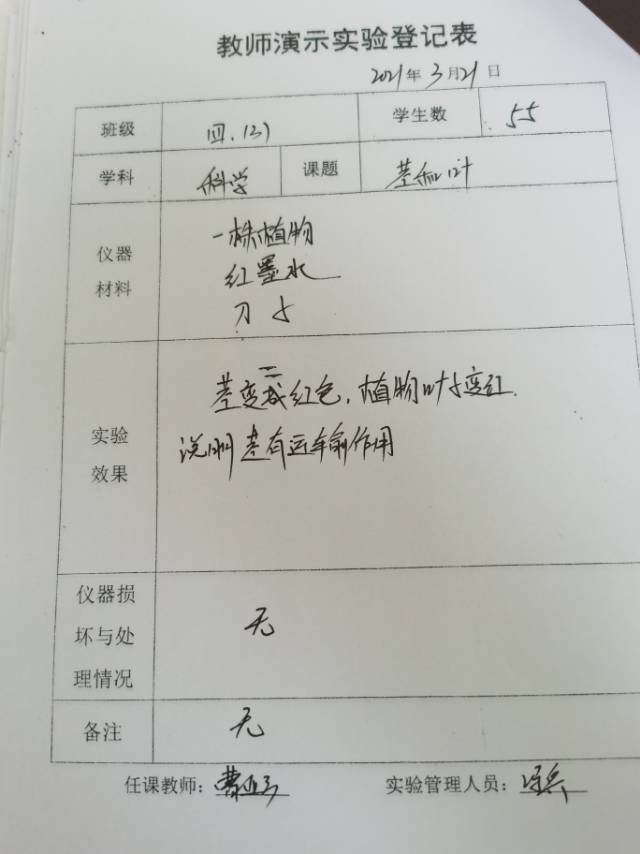 教师演示实验登记表
2021年3月21日
班级 四.(3) 学生数 55
学科 科学 课题 茎和叶
仪器材料
一株植物
红墨水
刀子
实验效果
茎变成红色,植物叶子变红.
说明茎有运输作用
仪器损坏与处理情况 无
备注 无
任课教师: 实验管理人员: